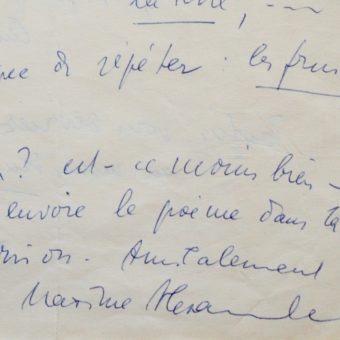 la terre,
de répéter : les frus
? est-ce moins bien -
envoie le poème dans ta
Amicalement
Maxime Alexandre